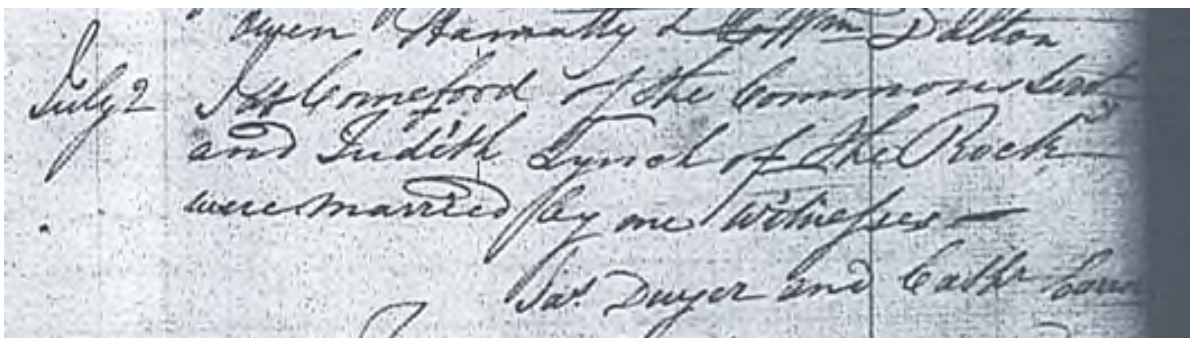 Owen Hamatty & Dalton
July 2 Jas Comeford of the Commons
and Judith Lynch of the Rock
were married by me Witnesses —
Jas. Dwyer and Cathe